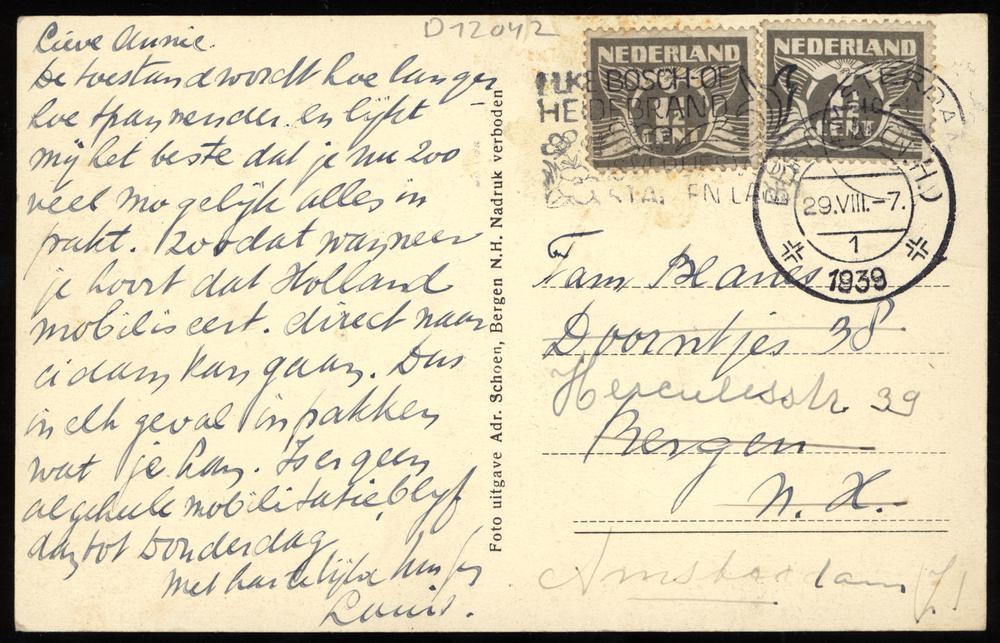 D12042
Lieve Annie.
De toestand wordt hoe langer
hoe spannender en lijkt
mij het beste dat je nu zoo
veel mogelijk alles in
pakt. Zoodat wanneer
je hoort dat Holland
mobiliseert. direct naar
A'dam kan gaan. Dus
in elk geval inpakken
wat je kan. Is er geen
algeheele mobilisatie, blijf
dan tot Donderdag
Met hartelijke
Louis.
Foto uitgave Adr. Schoen, Bergen N.H. Nadruk verboden
NEDERLAND
CENT
NEDERLAND
CENT
ELKE BOSCH-OF
HEIDEBRAND
IS VERLIES
STAD EN LAND
(N.H.)
29.VIII.-7.
1
1939
Fam Blanes
Doorntjes 38
Herculesstr. 39
Bergen
N.H.
Amsterdam Z